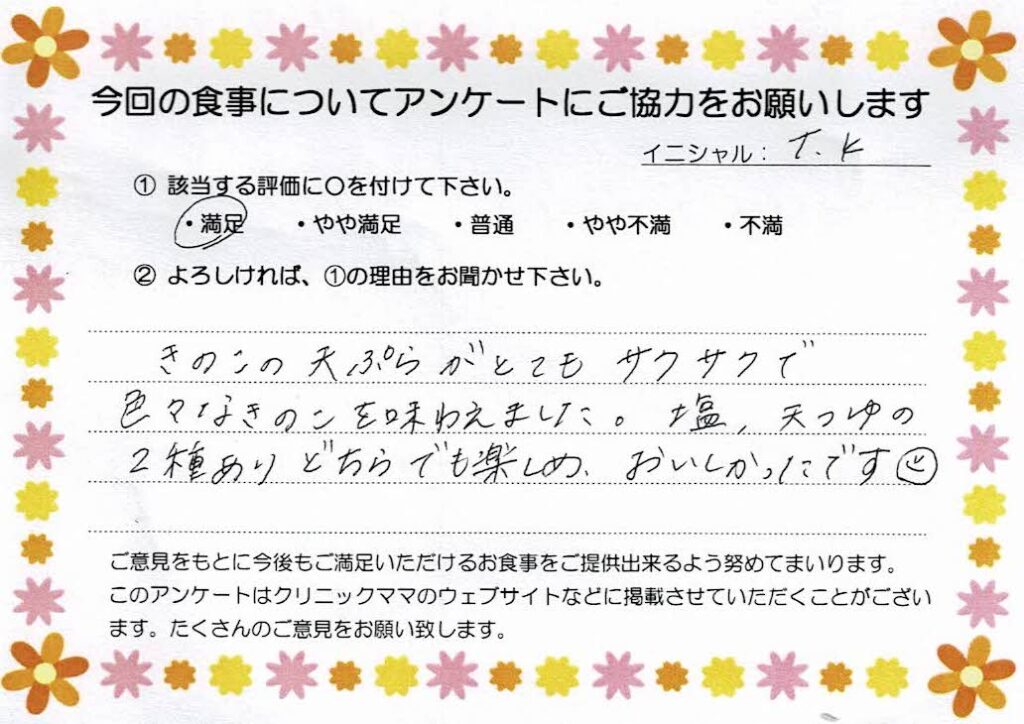 今回の食事についてアンケートにご協力をお願いします
イニシャル： T. K
① 該当する評価に〇を付けて下さい。
・満足　・やや満足　・普通　・やや不満　・不満
② よろしければ、①の理由をお聞かせ下さい。
きのこの天ぷらがとてもサクサクで
色々なきのこを味わえました。塩、天つゆの
2種ありどちらでも楽しめ、おいしかったです
ご意見をもとに今後もご満足いただけるお食事をご提供出来るよう努めてまいります。
このアンケートはクリニックママのウェブサイトなどに掲載させていただくことがござい
ます。たくさんのご意見をお願い致します。